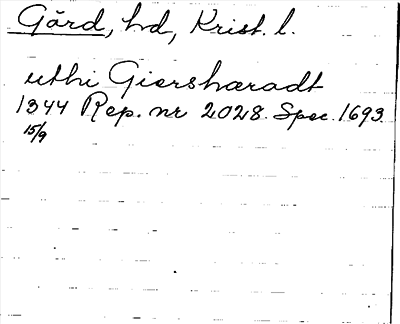 Gärd, hd, Krist. l.
uthi Giersharadt
1344 Rep. nr 2028. Spec. 1693
15/9